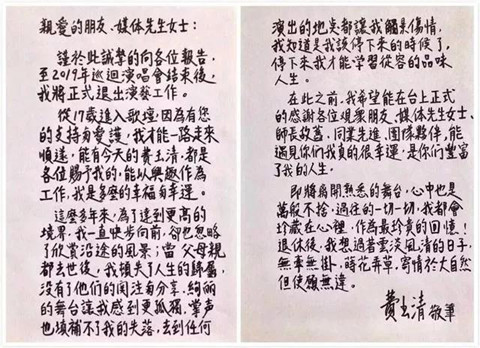 親愛的朋友、媒体先生女士：
謹於此誠摯的向各位報告，
至2019年巡迴演唱會結束後，
我將正式退出演藝工作。
從17歲進入歌壇，因為有您
的支持與愛護，我才能一路走來
順遂，能有今天的費玉清，都是
各位賜予我的，能以興趣作為
工作，我是多麼的幸福與幸運。
這麼多年來，為了達到更高的
境界，我一直快步向前，卻也忽略
了欣賞沿途的風景；當父母親
都去世後，我頓失了人生的歸屬，
沒有了他們的関注與分享，絢麗
的舞台讓我感到更孤獨，掌声
也填補不了我的失落，去到任何
演出的地点都讓我觸景傷情，
我知道是我該停下來的時候了，
停下來我才能学習從容的品味
人生。
在此之前，我希望能在台上正式
的感謝各位現眾朋友、媒体先生女士、
師長故舊、同業先進、團隊夥伴，能
遇見你们我真的很幸運，是你们豐富
了我的人生。
即將離開熟悉的舞台，心中也是
萬般不捨，過往的一切一切，我都會
珍藏在心裡，作為最珍貴的回憶！
退休後，我想過著雲淡風清的日子，
無牽無掛，蒔花弄草，寄情於大自然
但使願無違。
費玉清 敬筆